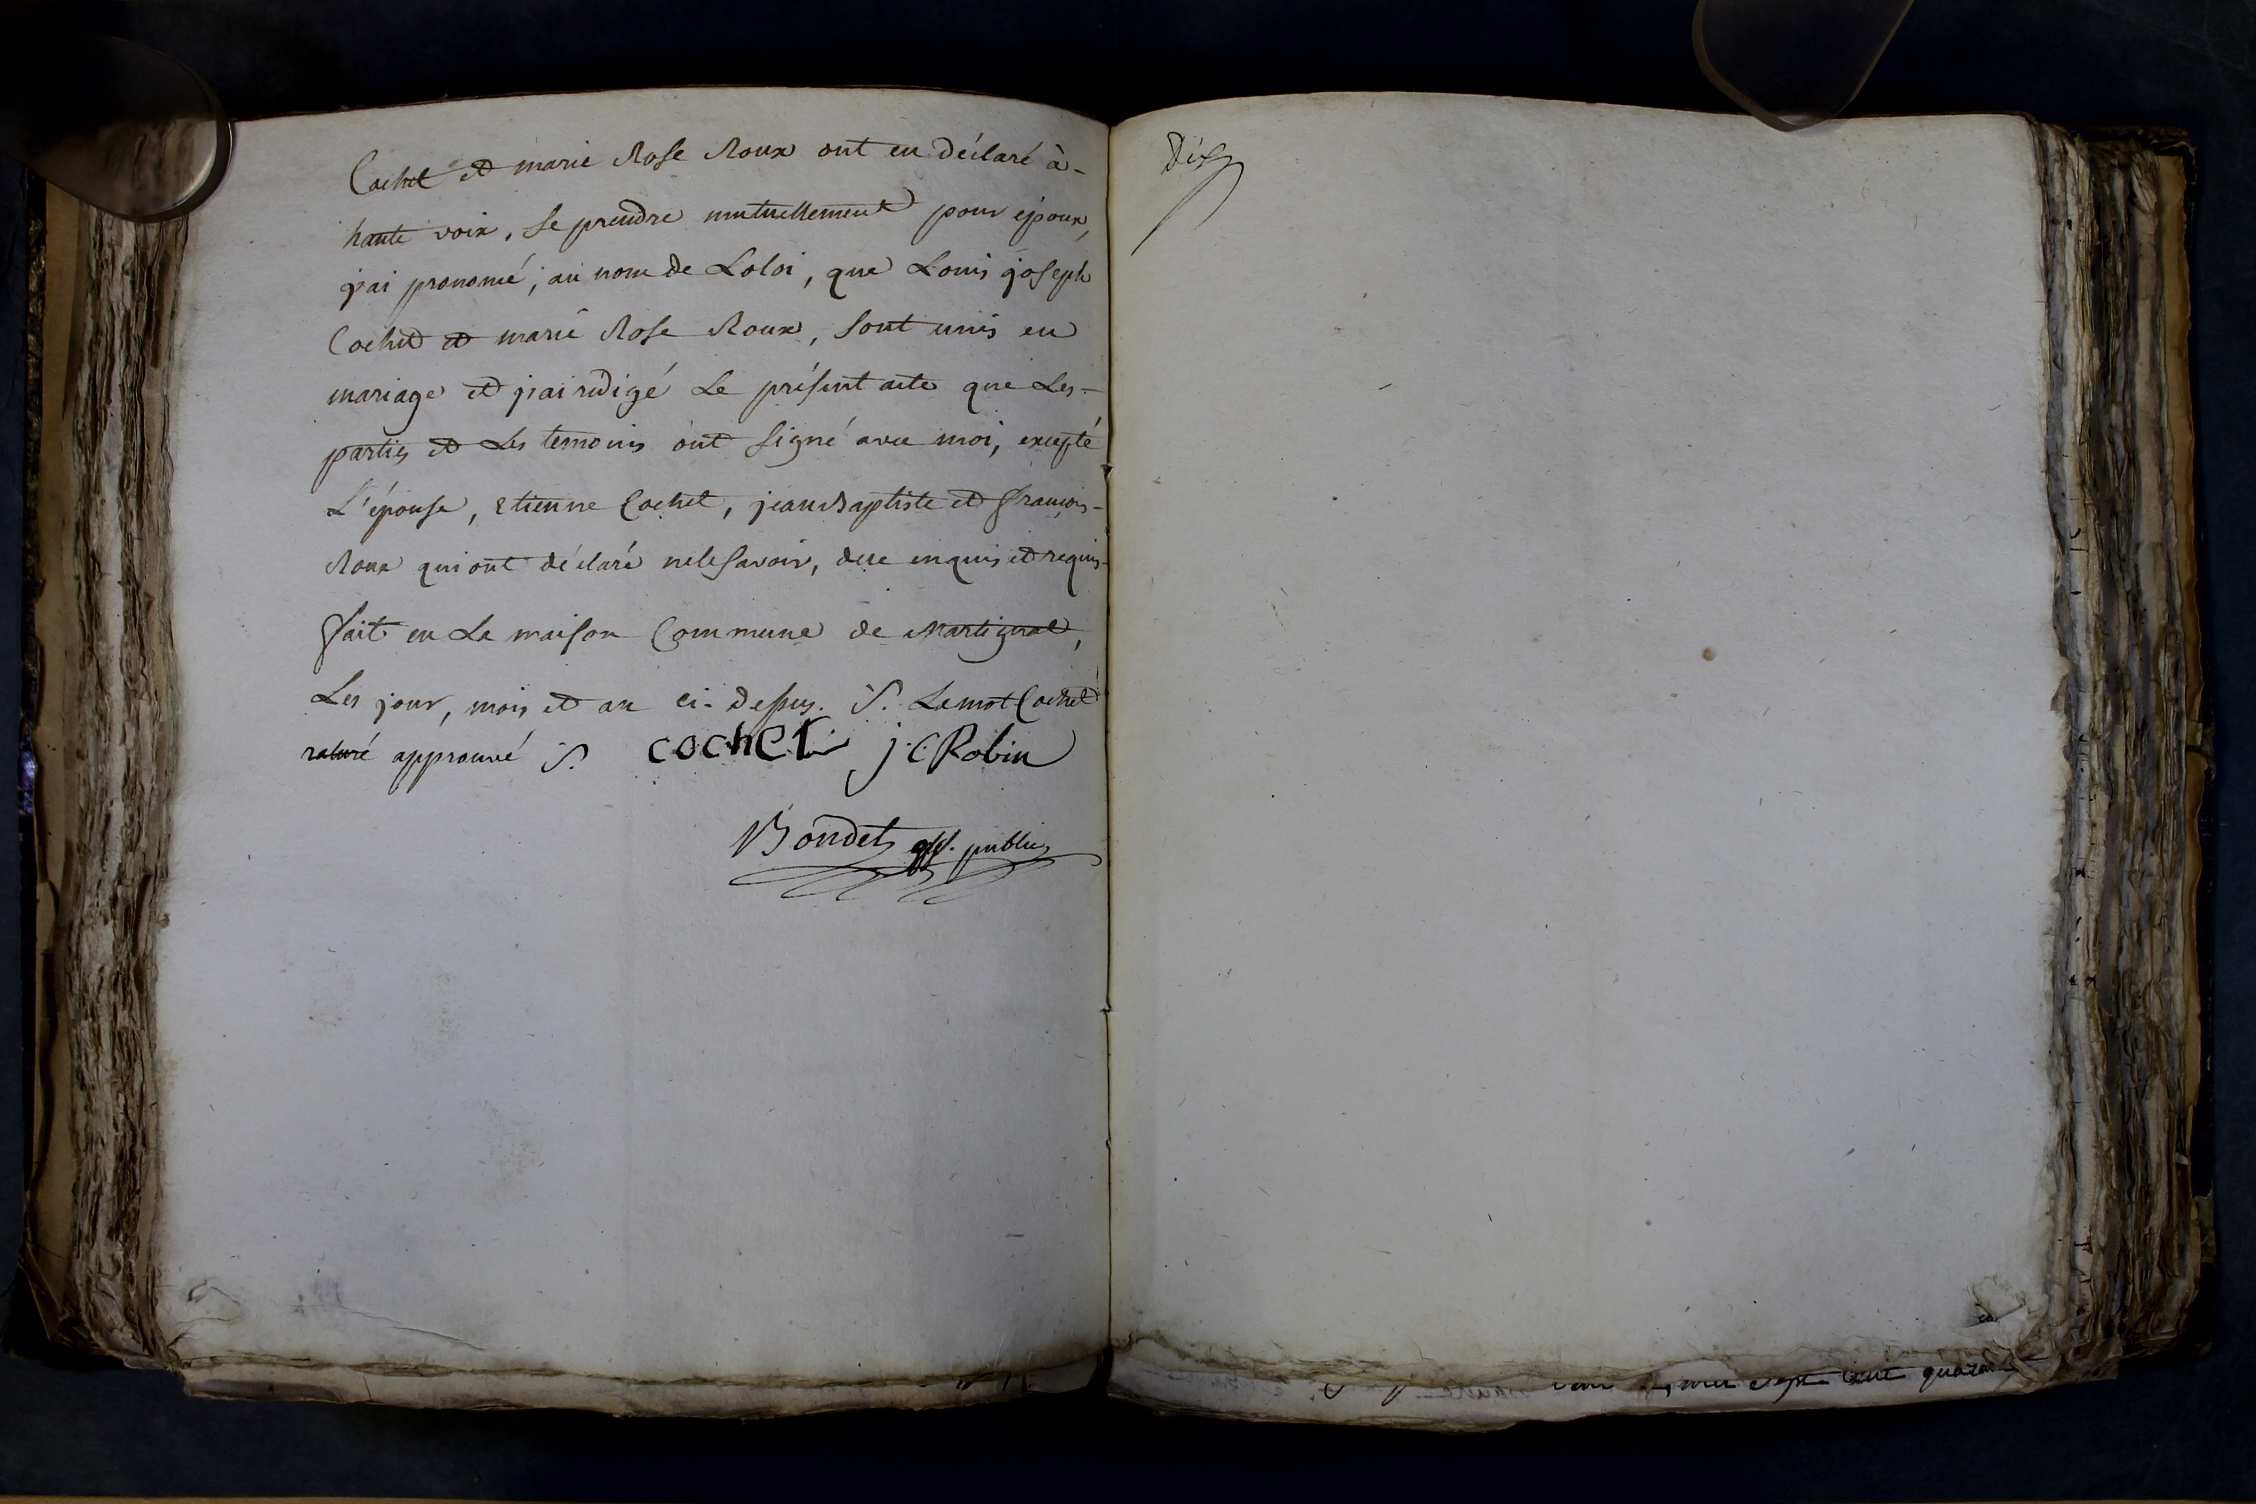 Cochet et marie Rose Roux ont eu déclaré à-
haute voix, se prendre mutuellement pour époux,
j'ai prononcé, au nom de Laloi, que Louis joseph
Cochet et marie Rose Roux, sont unis en
mariage et j'ai rédigé Le présent acte que Les-
parties et Les temoins ont signé avec moi, excepté
L'épouse, etienne Cochet, jean Baptiste et françois-
Roux qui ont déclaré nele savoir, de ce enquis et requis-
fait en La maison Commune de Martignat,
Les jour, mois et an ci-dessus. S. Lemot Cochet
raturé approuvé S. cochet j C Robin
Bondet off. public
Dix
mil sept cent quara